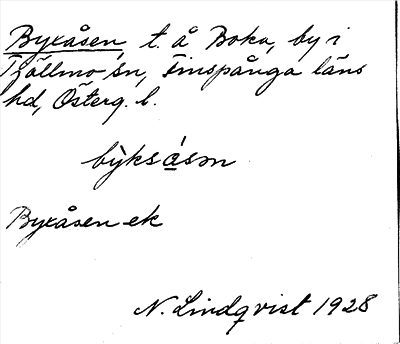 Byxåsen, t. å Boka, by i
Tjällmo sn, Finspånga läns
hd, Österg. l.
by̆ksá̱sən
Byxåsen ek
N. Lindqvist 1928